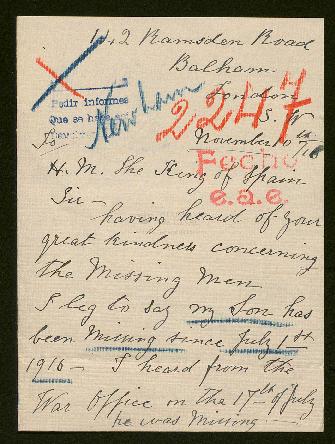 142 Ramsden Road
Balham.
London
S. W
Pedir informes
Que se ha
Newham
2247
November 10th/16
To
H. M. The King of Spain
Fecho
e.a.e.
Sir —
having heard of your
great kindness concerning
the Missing Men
I beg to say my Son has
been Missing since July 1st
1916 — I heard from the
War Office on the 17th of July
he was Missing —